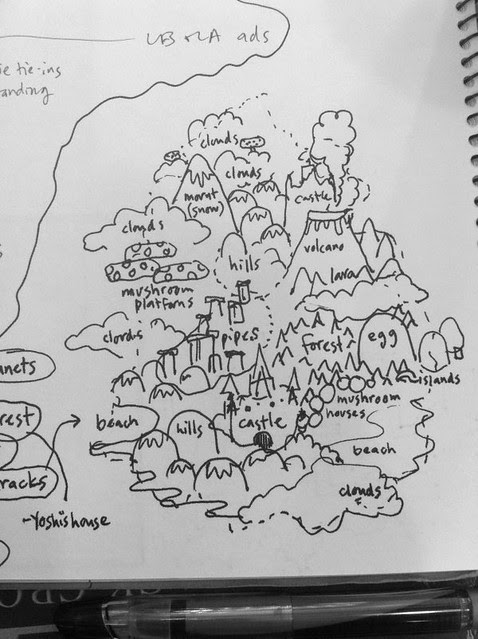 UB + LA ads
tie-ins
anding
clouds
clouds
mount
(snow)
castle
clouds
volcano
hills
lava
mushroom
platforms
clouds
pipes
forest
egg
anets
islands
mushroom
houses
rest
beach
hills
castle
beach
racks
clouds
Yoshis house